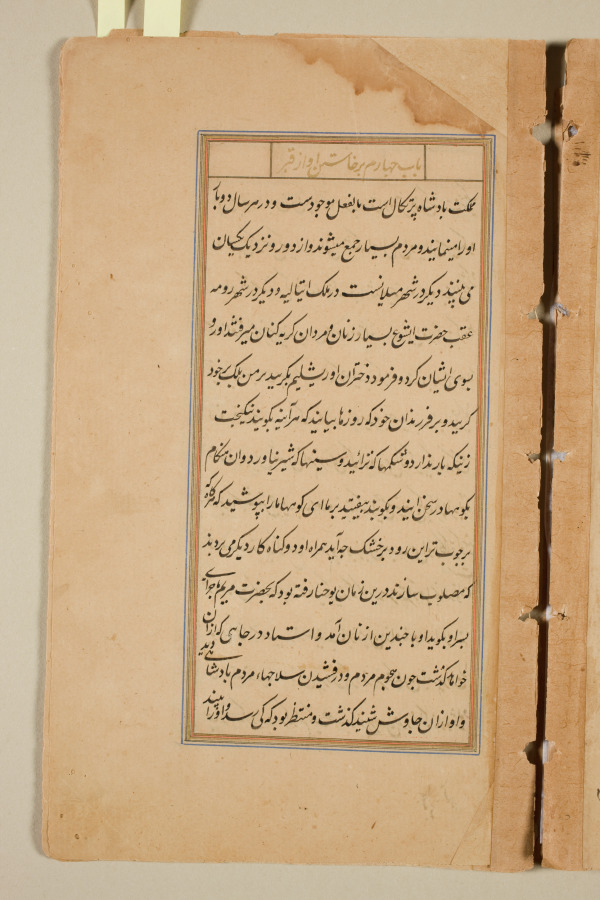 باب چهارم برخاستن او از قبر
مملکت بادشاه پرتکال است بالفعل موجودست و در هر سال دو بار
او را مینمایند و مردم بسیار جمع میشوند و از دور و نزدیک
می بینند دیگر در شهر میلانست در ملک ایتالیه و دیگر در شهر رومه
عقب حضرت ایشوع بسیار زنان و مردان کریه کنان میرفتند او رو
بسوی ایشان کرد و فرمود دختران اورشلیم مکریید بر من بلک بر خود
کریید و بر فرزندان خود که روزها بیایند که هر آینه بکویند نیکبخت
زنیکه بار نداردو شکمها که نزائید و سینها که شیر نیاورد و آن هنکام
بکوهها در سخن ایند و بکویند بیفتید بر ما ای کوهها ما را بپوشید که هرکاه
بر چوب تر این رود بر خشک چه آید همراه او دو کناه کار دیکر می بردند
که مصلوب سازند درین زمان یوحنا رفته بود که بحضرت مریم ماجرای
پسر او بکوید او با چندین از زنان آمد و استاد در جاهی که ازان
خواها کذشت چون هجوم مردم و درفشیدن سلاحها، مردم بادشاهی دید
و اواز ان چاوش شنید کذشت و منتظر بود که کی رسد و او را بیند